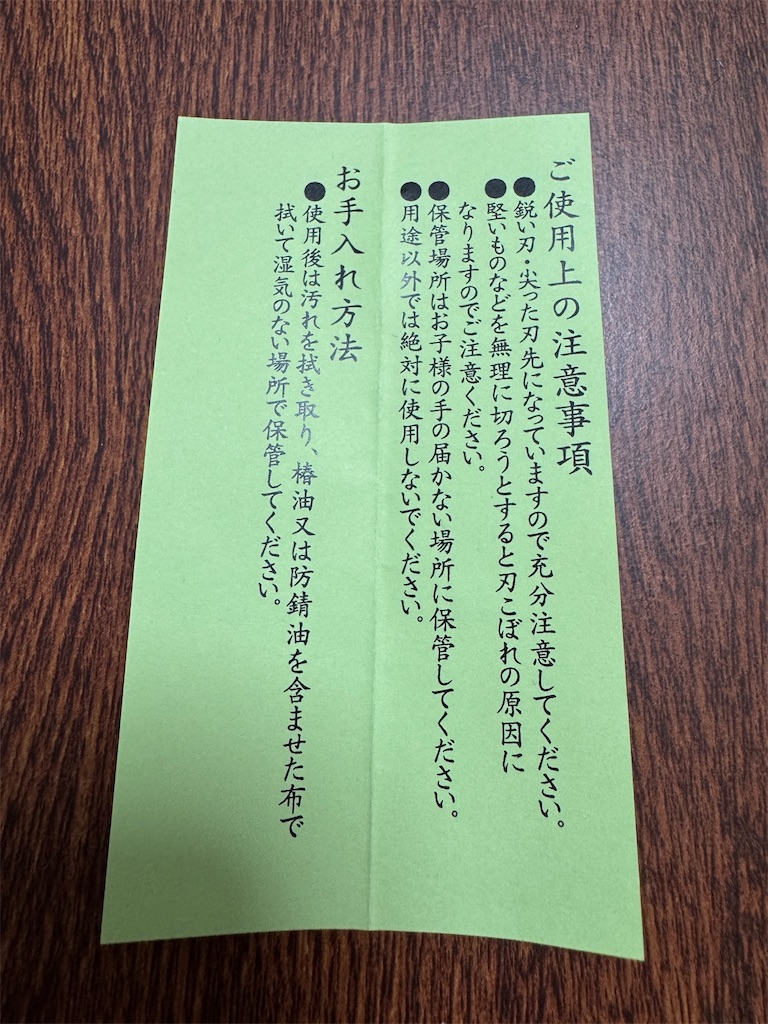 ご使用上の注意事項
●鋭い刃・尖った刃先になっていますので充分注意してください。
●堅いものなどを無理に切ろうとすると刃こぼれの原因に
なりますのでご注意ください。
●保管場所はお子様の手の届かない場所に保管してください。
●用途以外では絶対に使用しないでください。
お手入れ方法
●使用後は汚れを拭き取り、椿油又は防錆油を含ませた布で
拭いて湿気のない場所で保管してください。